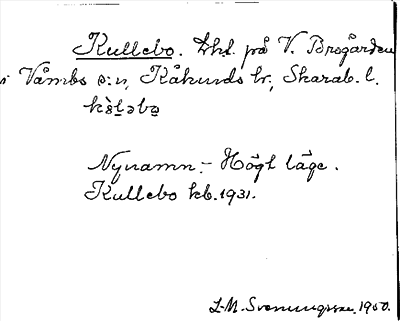 Kullebo. Lht. på V. Brogården
i Våmbs s:n, Kåkinds hr, Skarab. l.
Nynamn:- Högt läge.
Kullebo kb. 1931.
L-M. Svenningsson. 1950.